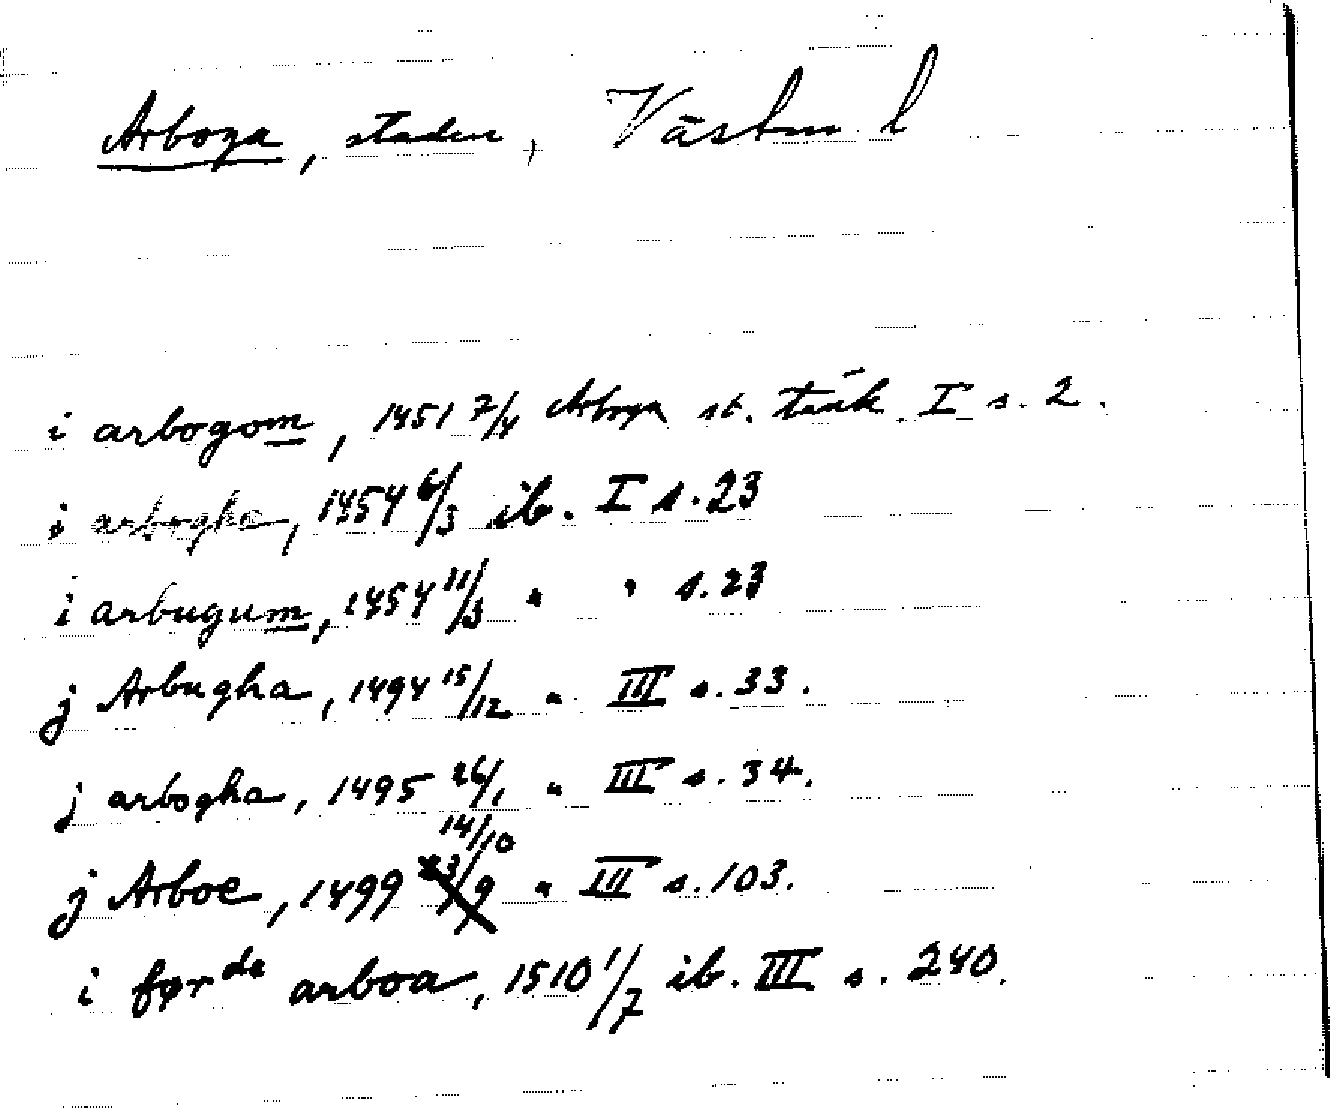 Arboga, staden, Västm l
i arbogom, 1451 7/4 Arboga st. tänk. I s. 2.
i arboghe, 1454 6/3 ib. I s. 23
i arbugum, 1454 11/3 " " s. 23
j Arbugha, 1494 15/12 " III s. 33.
j arbogha, 1495 26/1 " III s. 34.
14/10
j Arboe, 1499 23/9 " III s. 103.
i førde arboa, 1510 1/7 ib. III s. 240.